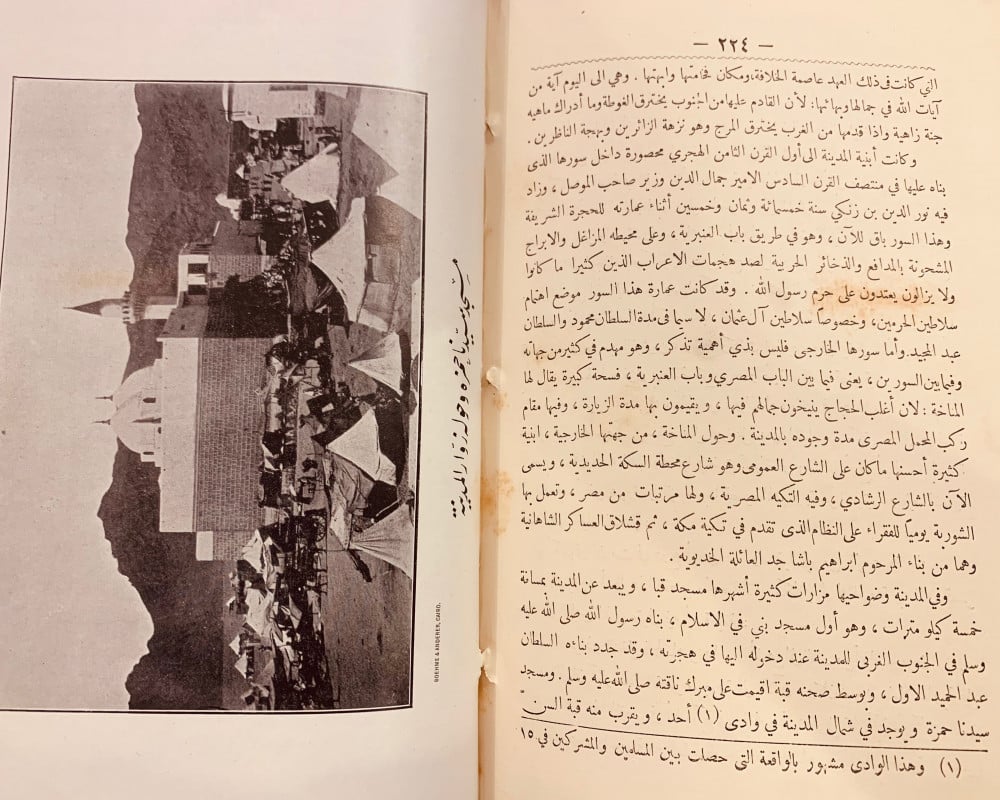 — ٢٢٤ —
التي كانت فى ذلك العهد عاصمة الخلافة، ومكان فخامتها وابهتها . وهي الى اليوم آية من
آيات الله في جمالها وبهائها: لأن القادم عليها من الجنوب يخترق الغوطة وما أدراك ماهيه
جنة زاهية واذا قدمها من الغرب يخترق المرج وهو نزهة الزائرين وبهجة الناظرين .
وكانت أبنية المدينة الى أول القرن الثامن الهجري محصورة داخل سورها الذى
بناه عليها في منتصف القرن السادس الامير جمال الدين وزير صاحب الموصل ، وزاد
فيه نور الدين بن زنكي سنة خمسمائة وثمان وخمسين أثناء عمارته للحجرة الشريفة
وهذا السور باق للآن ، وهو في طريق باب العنبرية ، وعلى محيطه المزاغل والابراج
المشحونة بالمدافع والذخائر الحربية لصد هجمات الاعراب الذين كثيرا ما كانوا
ولا يزالون يعتدون على حرم رسول الله . وقد كانت عمارة هذا السور موضع اهتمام
سلاطين الحرمين، وخصوصاً سلاطين آل عثمان ، لا سيما فى مدة السلطان محمود والسلطان
عبد المجيد. وأما سورها الخارجى فليس بذي أهمية تذكر ، وهو مهدم في كثير من جهاته
وفيما بين السورين ، يعنى فيما بين الباب المصري وباب العنبرية ، فسحة كبيرة يقال لها
المناخة : لان أغلب الحجاج ينيخون جمالهم فيها ، ويقيمون بها مدة الزيارة ، وفيها مقام
ركب المحمل المصرى مدة وجوده بالمدينة . وحول المناخة ، من جهتها الخارجية ، ابنية
كثيرة أحسنها ما كان على الشارع العمومى وهو شارع محطة السكة الحديدية ، ويسمى
الآن بالشارع الرشادي ، وفيه التكيه المصرية ، ولها مرتبات من مصر ، وتعمل بها
الشوربة يومياً للفقراء على النظام الذى تقدم في تكية مكة ، ثم قشلاق العساكر الشاهانية
وهما من بناء المرحوم ابراهيم باشا جد العائلة الخديوية .
وفي المدينة وضواحيها مزارات كثيرة أشهرها مسجد قبا ، ويبعد عن المدينة بمسافة
خمسة كيلو مترات ، وهو أول مسجد بني في الاسلام ، بناه رسول الله صلى الله عليه
وسلم في الجنوب الغربى للمدينة عند دخوله اليها في هجرته ، وقد جدد بناءه السلطان
عبد الحميد الاول ، وبوسط صحنه قبة اقيمت على مبرك ناقته صلى الله عليه وسلم . ومسجد
سيدنا حمزة ويوجد في شمال المدينة في وادى (١) أحد ، ويقرب منه قبة السن
(١) وهذا الوادى مشهور بالواقعة التى حصلت بين المسلمين والمشركين في ١٥
مسجد سيدنا حمزة وحوله زوار المدينة
BOEHME & ANDERER, CAIRO.